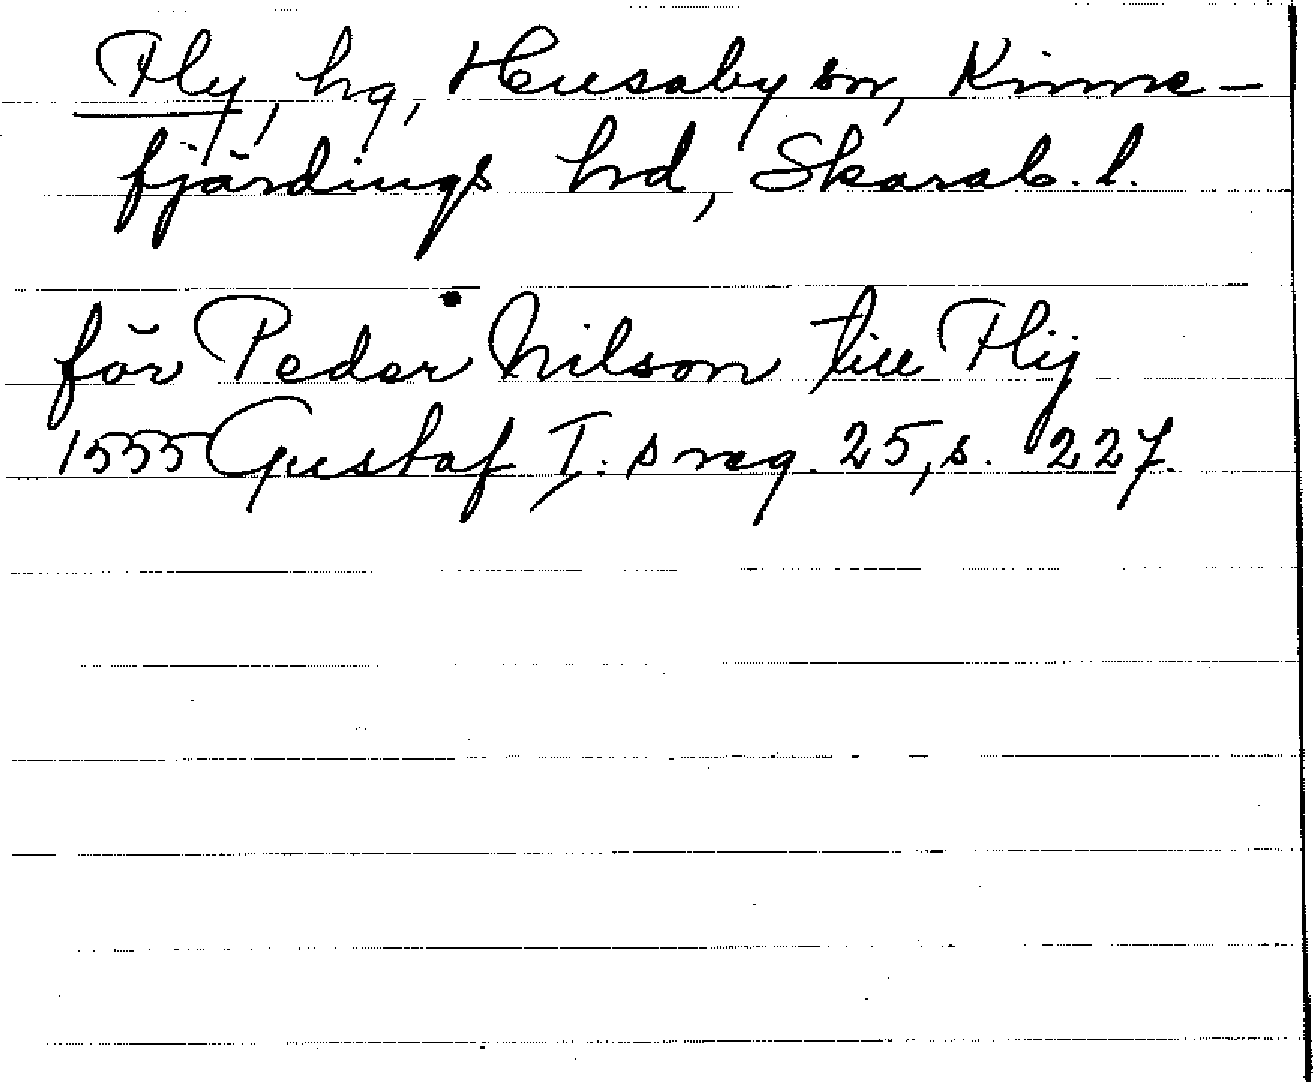 Fly, hg, Husaby sn, Kinne-
fjärdings hd, Skarab. l.
för Peder Nilson till Flij
1555 Gustaf I:s reg. 25, s. 227.